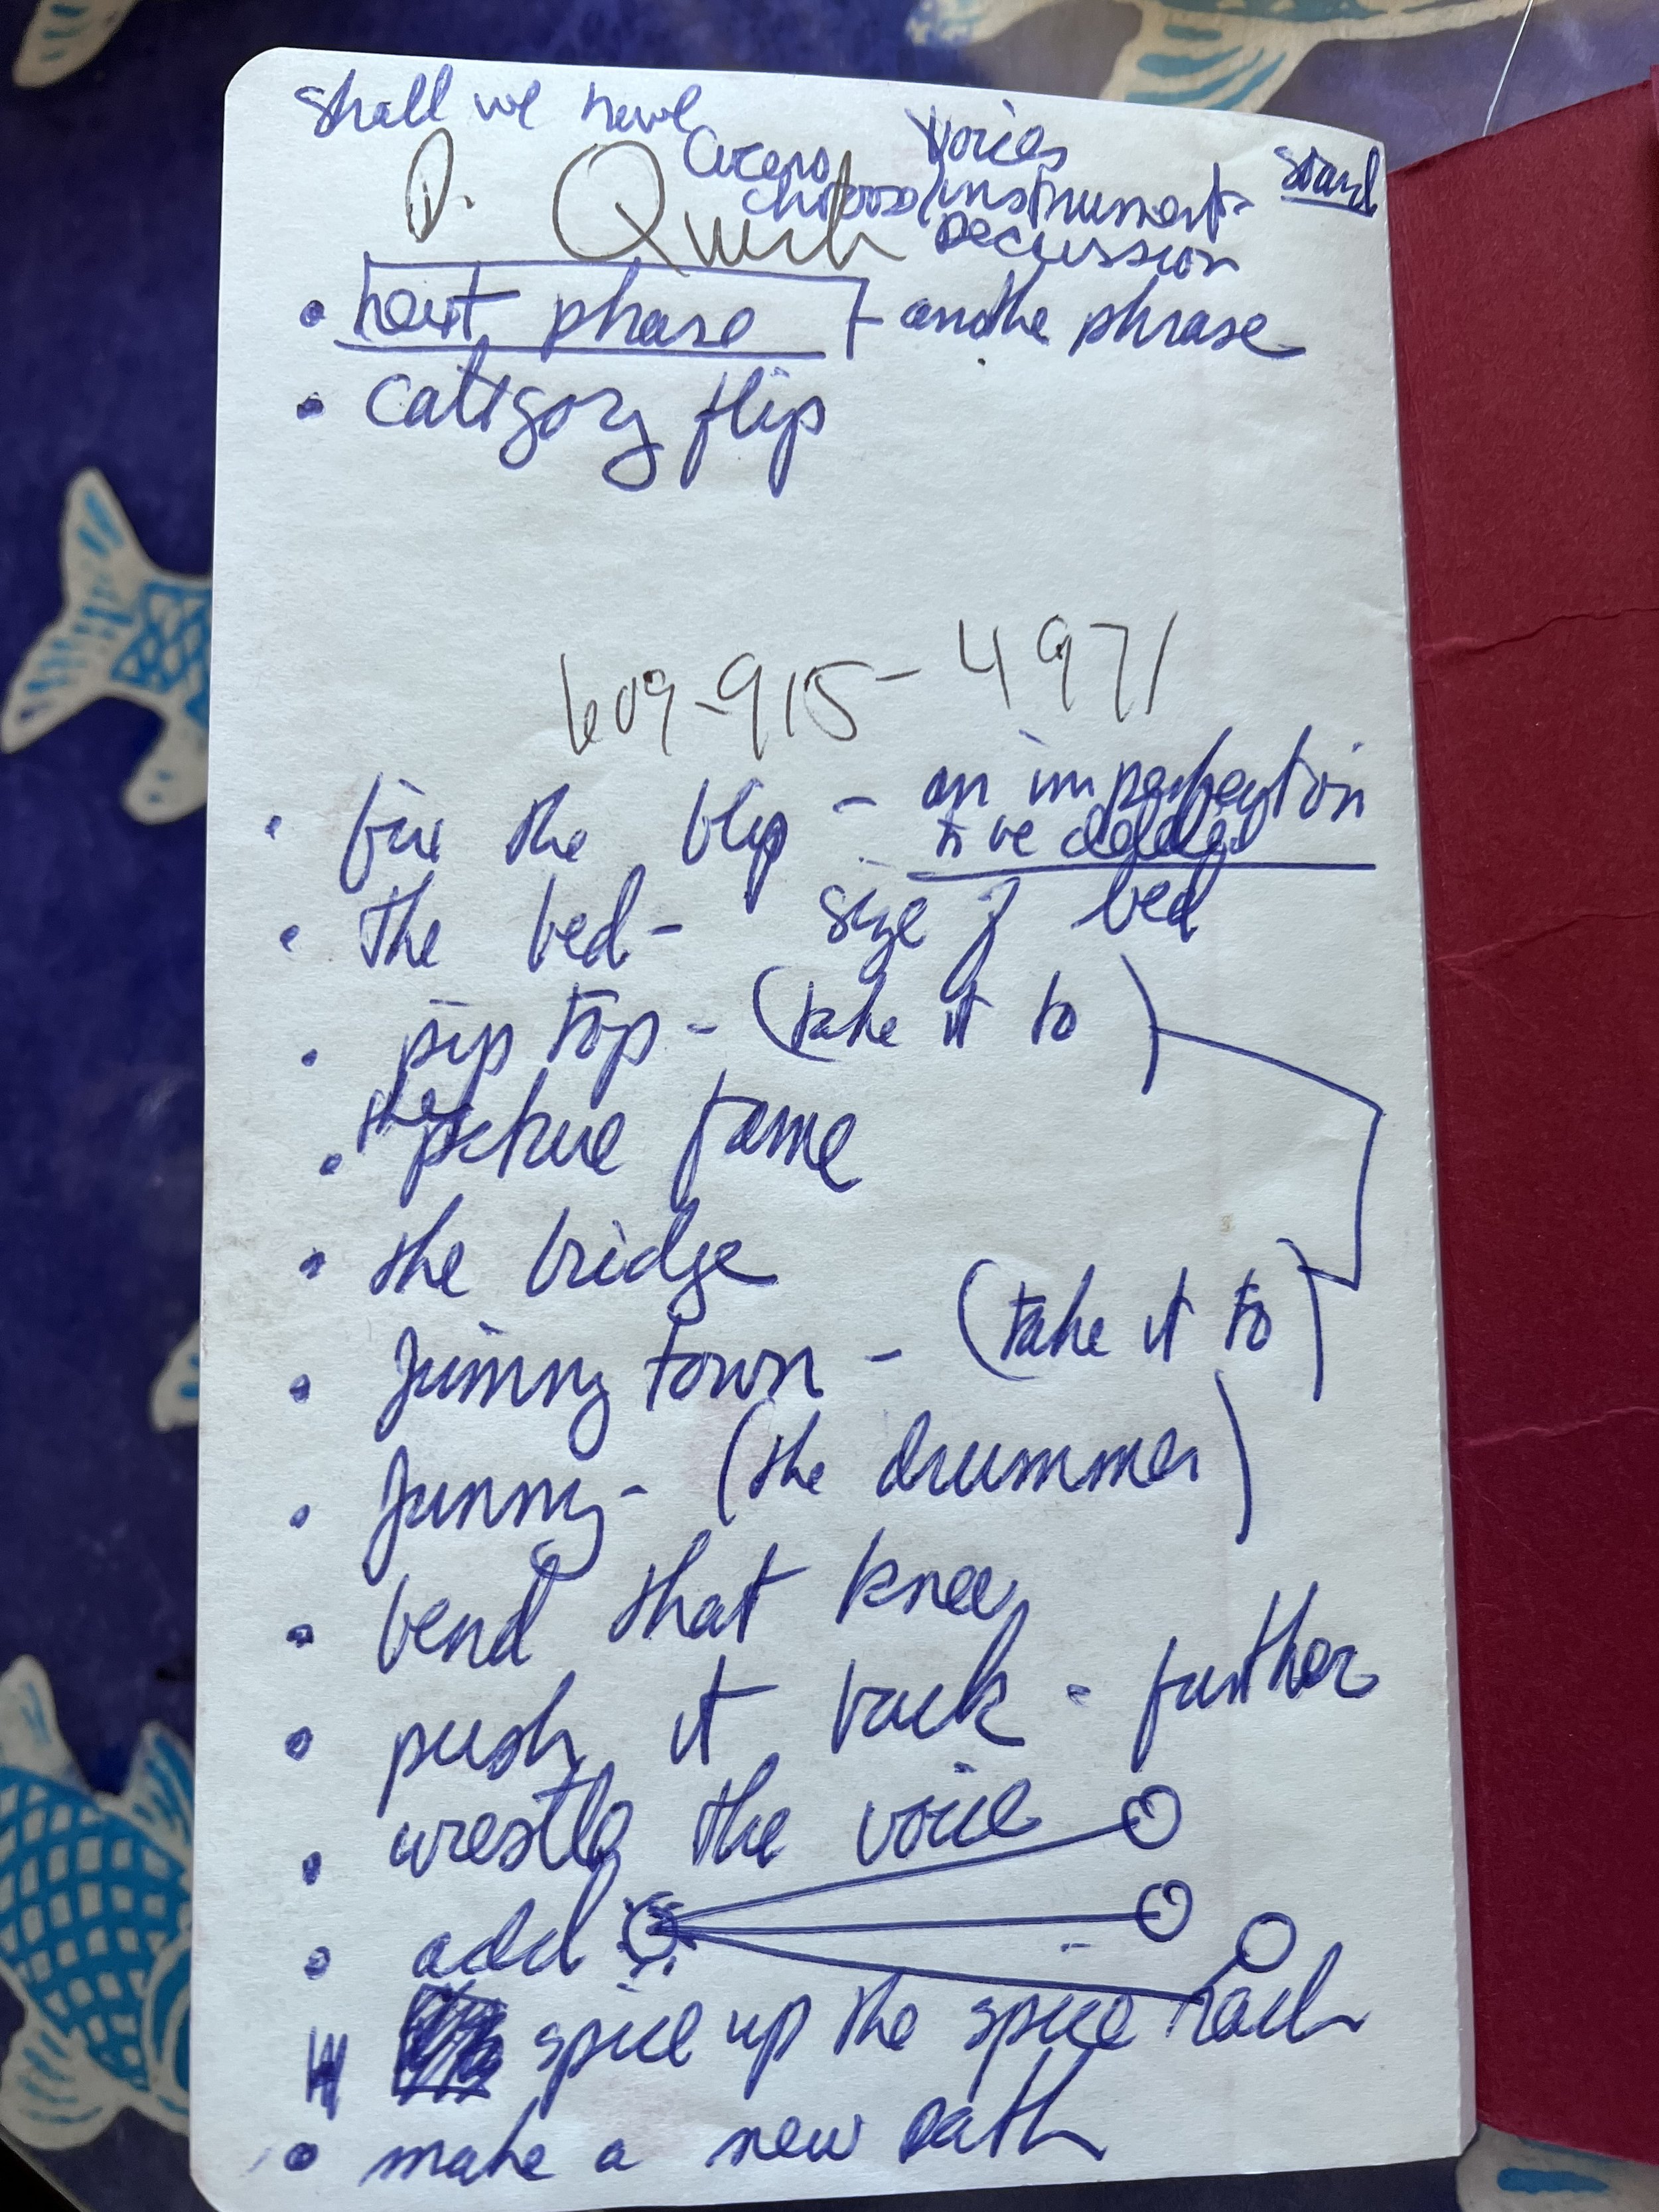 shall we have
voices
sound
instrument-
percussion
• next phase - another phrase
• category flip
609-915-4971
• fix the blip - an imperfection
• the bed - size of bed
• tip top - (take it to)
• the picture frame
• the bridge
• Jimmy town - (take it to)
• Jimmy - (the drummer)
• bend that knee
• push it back - further
• wrestle the voice
• add
spice up the spice rack
• make a new path